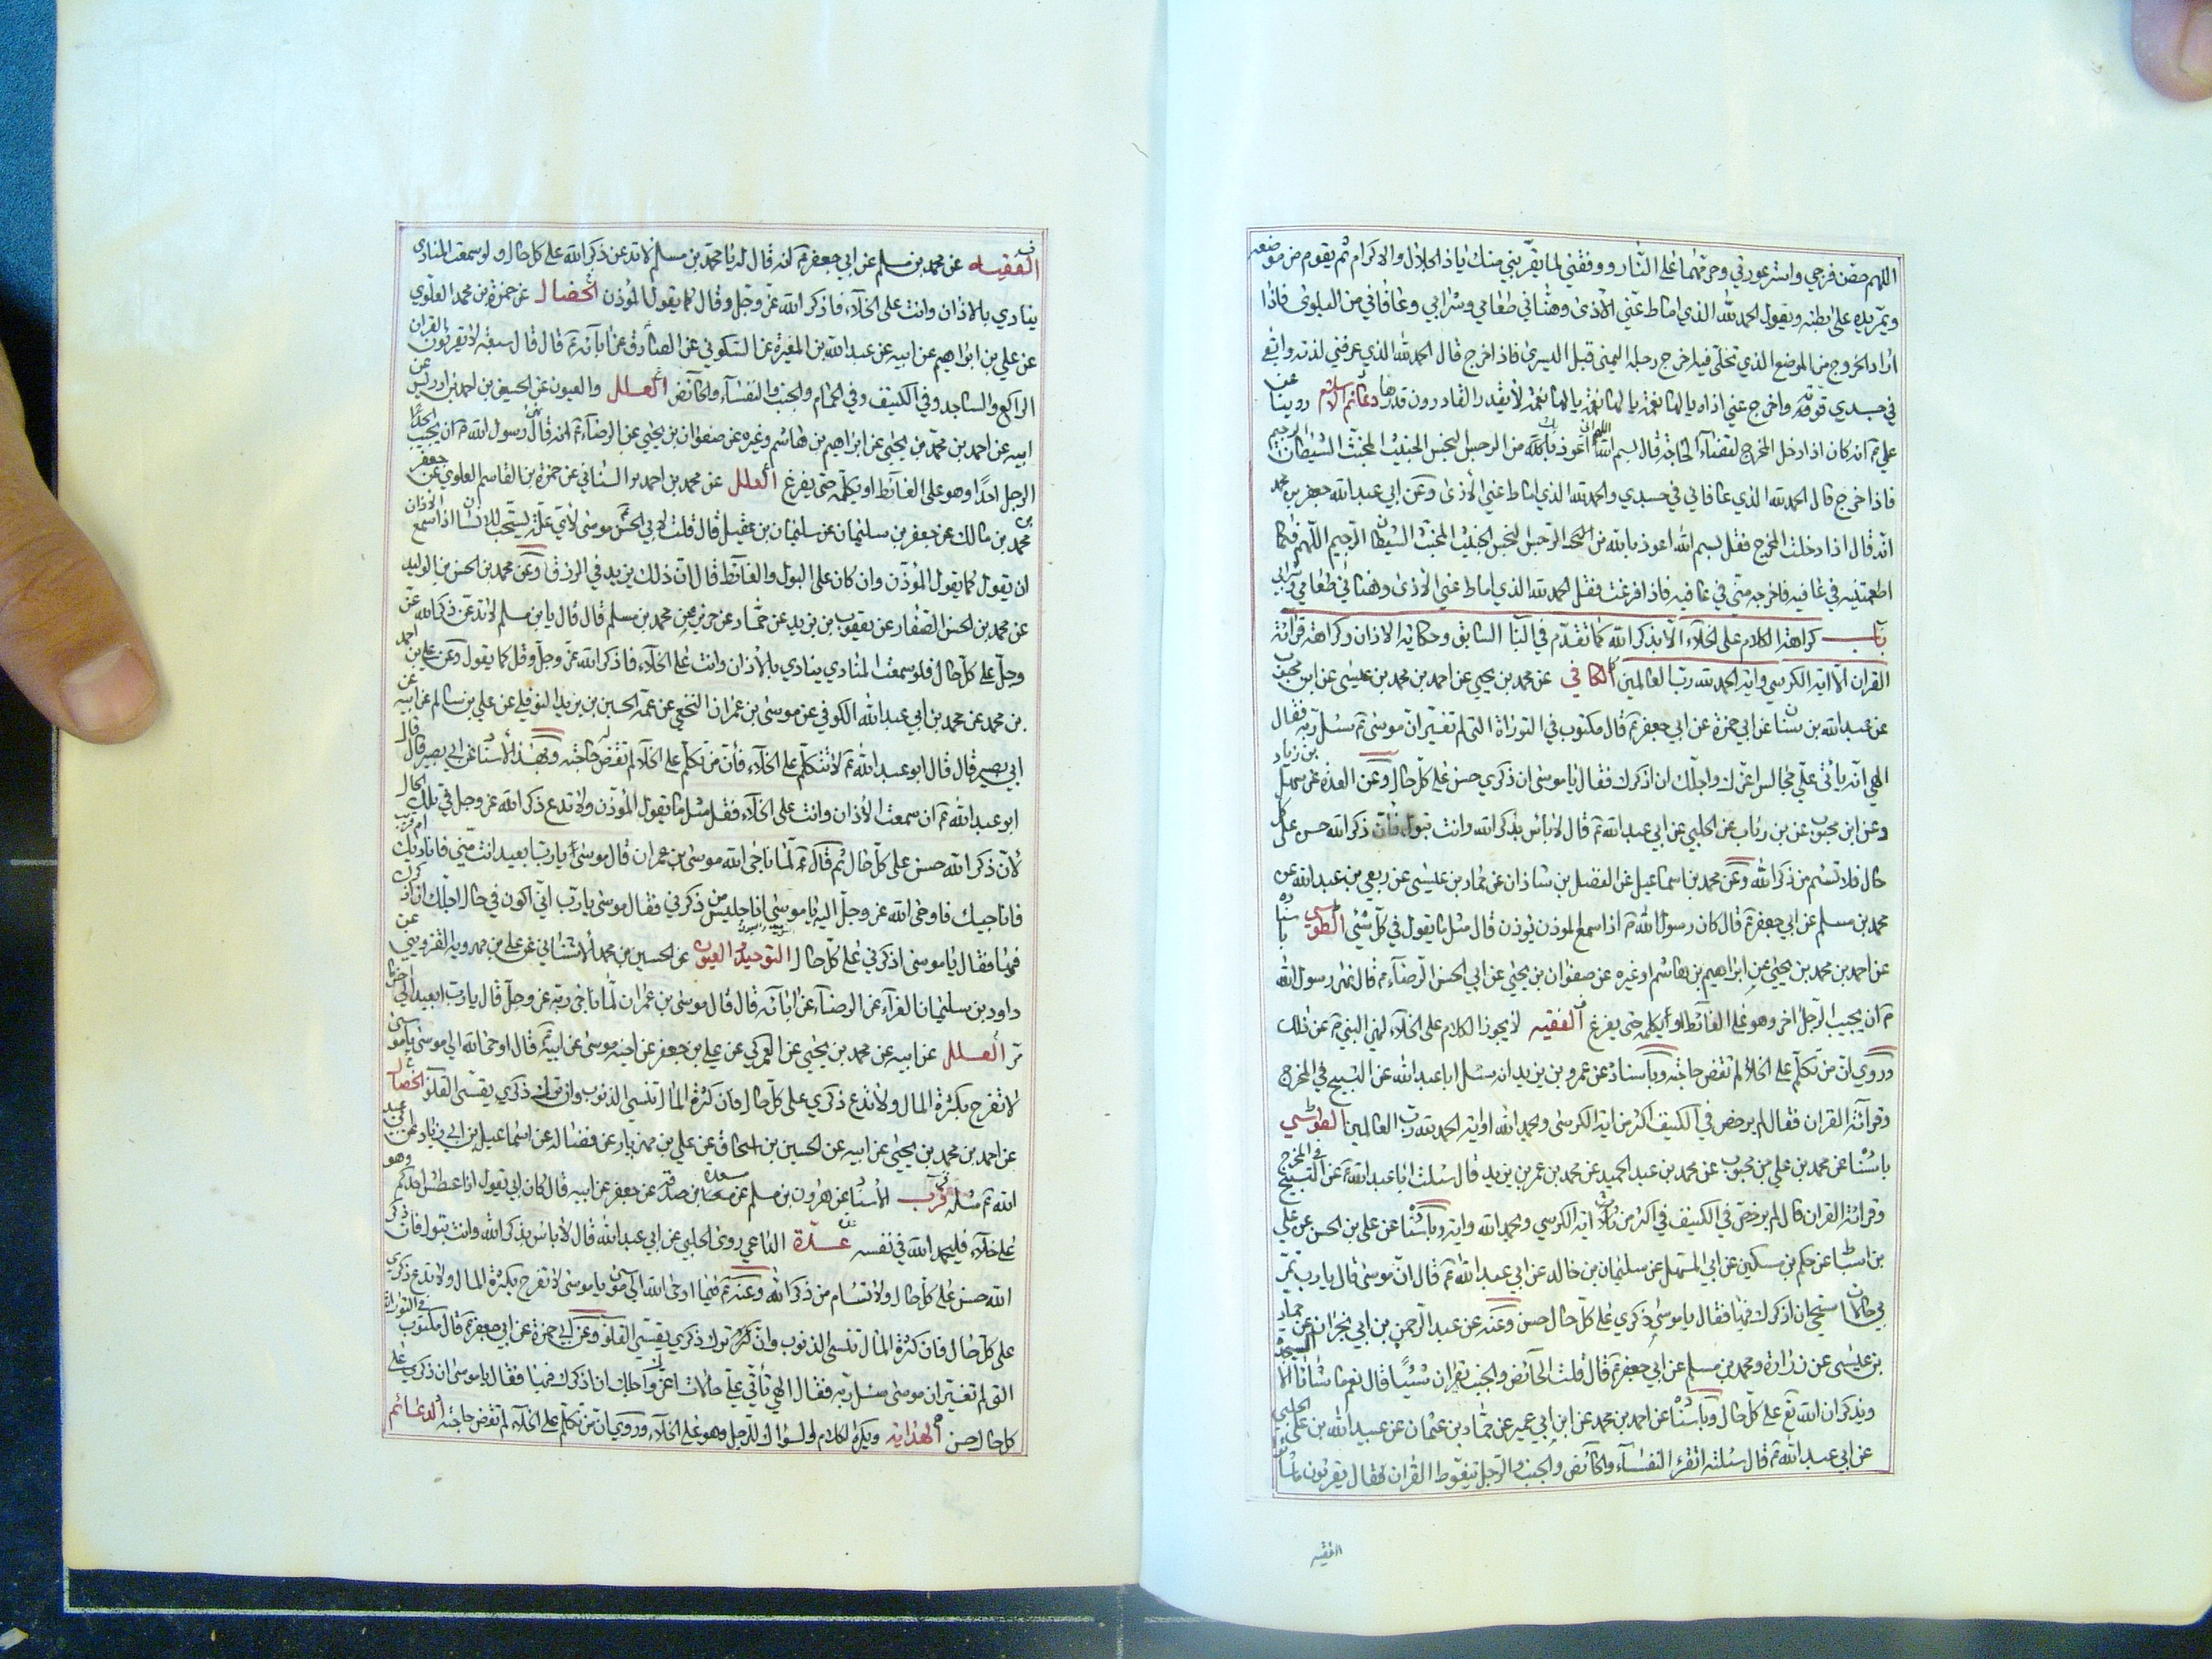 اللهم حصن فرجي واستر عورتي وحرمهما على النار ووفقني لما يقربني منك ياذا الجلال والاكرام ثم يقوم من موضعه
ويمر يده على بطنه ويقول الحمد لله الذي اماط عني الاذى وهناني طعامي وشرابي وعافاني من البلوى فاذا
اراد الخروج من الموضع الذي تخلى فيه اخرج رجله اليمنى قبل اليسرى فاذا خرج قال الحمد لله الذي عرفني لذته وابقى
في جسدي قوته واخرج عني اذاه يالها نعمة يالها نعمة يالها نعمة لا يقدر القادرون قدرها دعائم الاسلام روينا عن
علي ع انه كان اذا دخل المخرج لقضاء الحاجة قال بسم الله اللهم اني اعوذ بك من الرجس النجس الخبيث المخبث الشيطان الرجيم
فاذا خرج قال الحمد لله الذي عافاني في جسدي والحمد لله الذي اماط عني الاذى وعن ابي عبد الله جعفر بن محمد
انه قال اذا دخلت المخرج فقل بسم الله اعوذ بالله من الرجس النجس الخبيث المخبث الشيطان الرجيم اللهم فكما
اطعمتنيه في عافيه فاخرجه مني في عافيه فاذا فرغت فقل الحمد لله الذي اماط عني الاذى وهناني طعامي وشرابي
باب كراهة الكلام على الخلاء الا بذكر الله كما تقدم في الباب السابق وحكاية الاذان وكراهة قرائة
القران الا اية الكرسي واية الحمد لله رب العالمين الكافي عن محمد بن يحيى عن احمد بن محمد بن عيسى عن ابن محبوب
عن عبد الله بن سنان عن ابي حمزة عن ابي جعفر ع قال مكتوب في التوراة التي لم تغير ان موسى ع سئل ربه فقال
الهي انه يأتي علي مجالس اعزك واجلك ان اذكرك فقال يا موسى ان ذكري حسن على كل حال وعن العدة عن سهل بن زياد
وعن ابن محبوب عن بن رئاب عن الحلبي عن ابي عبد الله ع قال لا بأس بذكر الله وانت تبول فان ذكر الله حسن على كل
حال فلا تسئم من ذكر الله وعن محمد بن اسماعيل عن الفضل بن شاذان عن حماد بن عيسى عن ربعي بن عبد الله عن
محمد بن مسلم عن ابي جعفر ع قال كان رسول الله ص اذا سمع المؤذن يؤذن قال مثل ما يقول في كل شئ الطوسي باسناده
عن احمد بن محمد بن يحيى عن ابراهيم بن هاشم او غيره عن صفوان بن يحيى عن ابي الحسن الرضاء ع قال نهى رسول الله
ص ان يجيب الرجل اخر وهو على الغائط او يكلمه حتى يفرغ الفقيه لا يجوز الكلام على الخلاء لنهي النبي ص عن ذلك
وروي ان من تكلم على الخلاء لم تقض حاجته وباسناده عن عمرو بن يزيد انه سئل ابا عبد الله عن التسبيح في المخرج
وقرآئة القران فقال لم يرخص في الكنيف اكثر من اية الكرسى ويحمد الله او اية الحمد لله رب العالمين الطوسي
باسناده عن محمد بن علي بن محبوب عن محمد بن عبد الحميد عن محمد بن عمر بن يزيد قال سئلت ابا عبد الله ع عن التسبيح في المخرج
وقرائة القران قال لم يرخص في الكنيف في اكثر من اية الكرسي ويحمد الله واية وباسناده عن علي بن الحسن عن علي
بن اسباط عن حكم بن مسكين عن ابي المستهل عن سليمان بن خالد عن ابي عبد الله ع قال ان موسى قال يا رب تمر
بي حالات استحي ان اذكرك فيها فقال يا موسى ذكري على كل حال حسن وعنه عن عبد الرحمن بن ابي نجران عن حماد
بن عيسى عن زرارة ومحمد بن مسلم عن ابي جعفر ع قال قلت الحائض والجنب يقران شيئا قال نعم ما شائا الا السجدة
ويذكران الله تع على كل حال وباسناده عن احمد بن محمد عن ابن ابي عمير عن حماد بن عثمان عن عبيد الله بن علي الحلبي
عن ابي عبد الله ع قال سئلته اتقرء النفساء والحائض والجنب والرجل يتغوط القران فقال يقرئون ما شائوا
الفقيه
الفقيه عن محمد بن مسلم عن ابي جعفر ع انه قال له يا محمد بن مسلم لا تدعن ذكر الله على كل حال ولو سمعت المنادي
ينادي بالاذان وانت على الخلاء فاذكر الله عز وجل وقال كما يقول المؤذن الخصال عن حمزة بن محمد العلوي
عن علي بن ابراهيم عن ابيه عن عبد الله بن المغيرة عن السكوني عن الصادق عن ابآئه ع قال قال سبعة لا يقرئون القران
الراكع والساجد وفي الكنيف وفي الحمام والجنب والنفساء والحائض العلل والعيون عن الحسين بن احمد بن ادريس عن
ابيه عن احمد بن محمد بن يحيى عن ابراهيم بن هاشم وغيره عن صفوان بن يحيى عن الرضاء ع انه قال نهى رسول الله ص ان يجيب
الرجل احدا وهو على الغائط او يكلمه حتى يفرغ العلل عن محمد بن احمد السناني عن حمزة بن القاسم العلوي عن جعفر
بن محمد بن مالك عن جعفر بن سليمان عن سليمان بن عقيل قال قلت لابي الحسن موسى لاي علة يستحب للانسان اذا سمع الاذان
ان يقول كما يقول المؤذن وان كان على البول والغائط قال ان ذلك يزيد في الرزق وعن محمد بن الحسن بن الوليد
عن محمد بن الحسن الصفار عن يعقوب بن يزيد عن حماد عن حريز عن محمد بن مسلم قال قال يا بن مسلم لا تدعن ذكر الله عز
وجل على كل حال فلو سمعت المنادي ينادي بالاذان وانت على الخلاء فاذكر الله عز وجل وقل كما يقول وعن علي بن احمد
بن محمد عن محمد بن ابي عبد الله الكوفي عن موسى بن عمران النخعي عن عمه الحسين بن يزيد النوفلي عن علي بن سالم عن ابيه عن
ابي بصير قال قال ابو عبد الله ع لا تتكلم على الخلاء فان من تكلم على الخلاء لم تقض له حاجته وبهذا الاسناد عن ابي بصير قال قال
ابو عبد الله ع ان سمعت الاذان وانت على الخلاء فقل مثل ما يقول المؤذن ولا تدع ذكر الله عز وجل في تلك الحال
لان ذكر الله حسن على كل حال ثم قال ع لما ناجى الله موسى بن عمران قال موسى يا رب ابعيد انت مني فاناديك ام قريب
فاناجيك فاوحى الله عز وجل اليه يا موسى انا جليس من ذكرني فقال موسى يا رب اني اكون في حال اجلك ان اذكرك
فيها فقال يا موسى اذكرني على كل حال التوحيد والعيون عن الحسين بن محمد الاشناني عن علي بن مهرويه القزويني عن
داود بن سليمان الفراء عن الرضاء عن ابائه قال قال موسى بن عمران لما ناجى ربه عز وجل قال يا رب ابعيد الى اخرها
مر العلل عن ابيه عن محمد بن يحيى عن العمركي عن علي بن جعفر عن اخيه موسى عن ابيه ع قال اوحى الله الى موسى يا موسى
لا تفرح بكثرة المال ولا تدع ذكري على كل حال فان كثرة المال تنسي الذنوب وان ترك ذكري يقسي القلوب الخصال
عن احمد بن محمد بن يحيى عن ابيه عن الحسين بن اسحاق عن علي بن مهزيار عن فضالة عن اسماعيل بن ابي زياد عن ابي عبد
الله ع مثله قرب الاسناد عن هرون بن مسلم عن مسعدة بن صدقة عن جعفر عن ابيه قال كان ابي يقول اذا عطس احدكم وهو
على خلاء فليحمد الله في نفسه عدة الداعي روى الحلبي عن ابي عبد الله قال لا باس بذكر الله وانت تبول فان ذكر
الله حسن على كل حال ولا تسأم من ذكر الله وعنه ع فيما اوحى الله الى موسى يا موسى لا تفرح بكثرة المال ولا تدع ذكري
على كل حال فان كثرة المال تنسي الذنوب وان ترك ذكري يقسي القلوب وعن ابي حمزة عن ابي جعفر ع قال مكتوب في التوراة
التي لم تغير ان موسى سئل ربه فقال الهي تأتي علي حالات اعزك واجلك ان اذكرك فيها فقال يا موسى ان ذكري على
كل حال حسن الهداية ويكره الكلام والسواك للرجل وهو على الخلاء وروي ان من تكلم على الخلاء لم تقض حاجته الدعائم